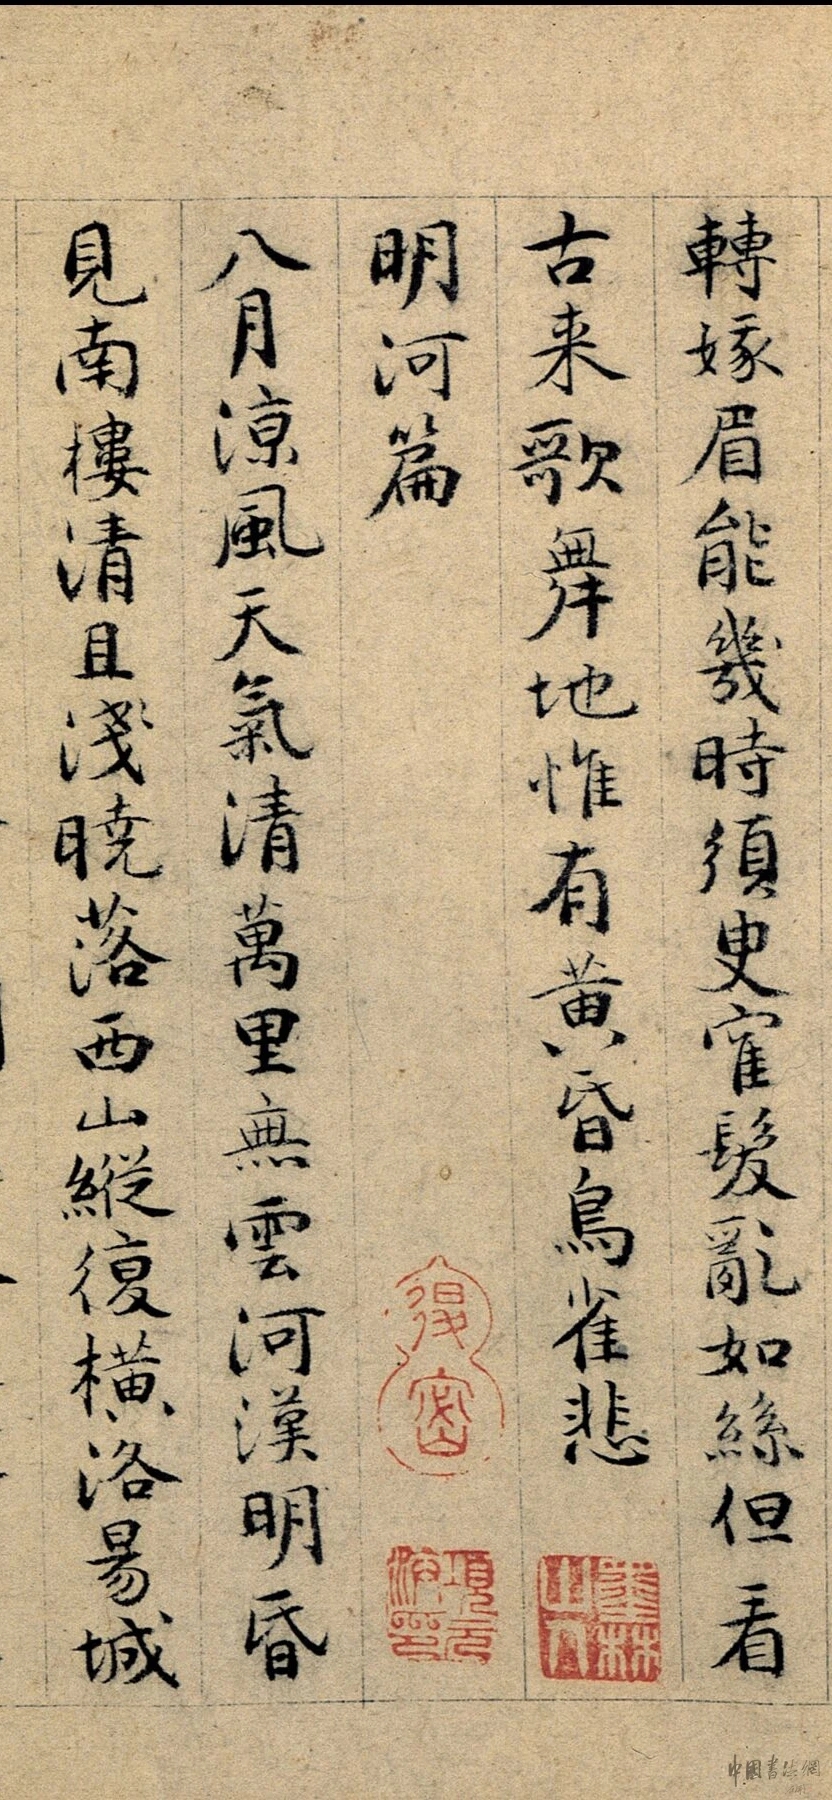 轉娥眉能幾時須臾寉髮亂如絲但看
古来歌舞地惟有黄昏鳥雀悲
墨林山人
明河篇
退密
項元汴印
八月涼風天氣清萬里無雲河漢明昏
見南樓清且淺曉落西山縱復橫洛昜城
中國書法網